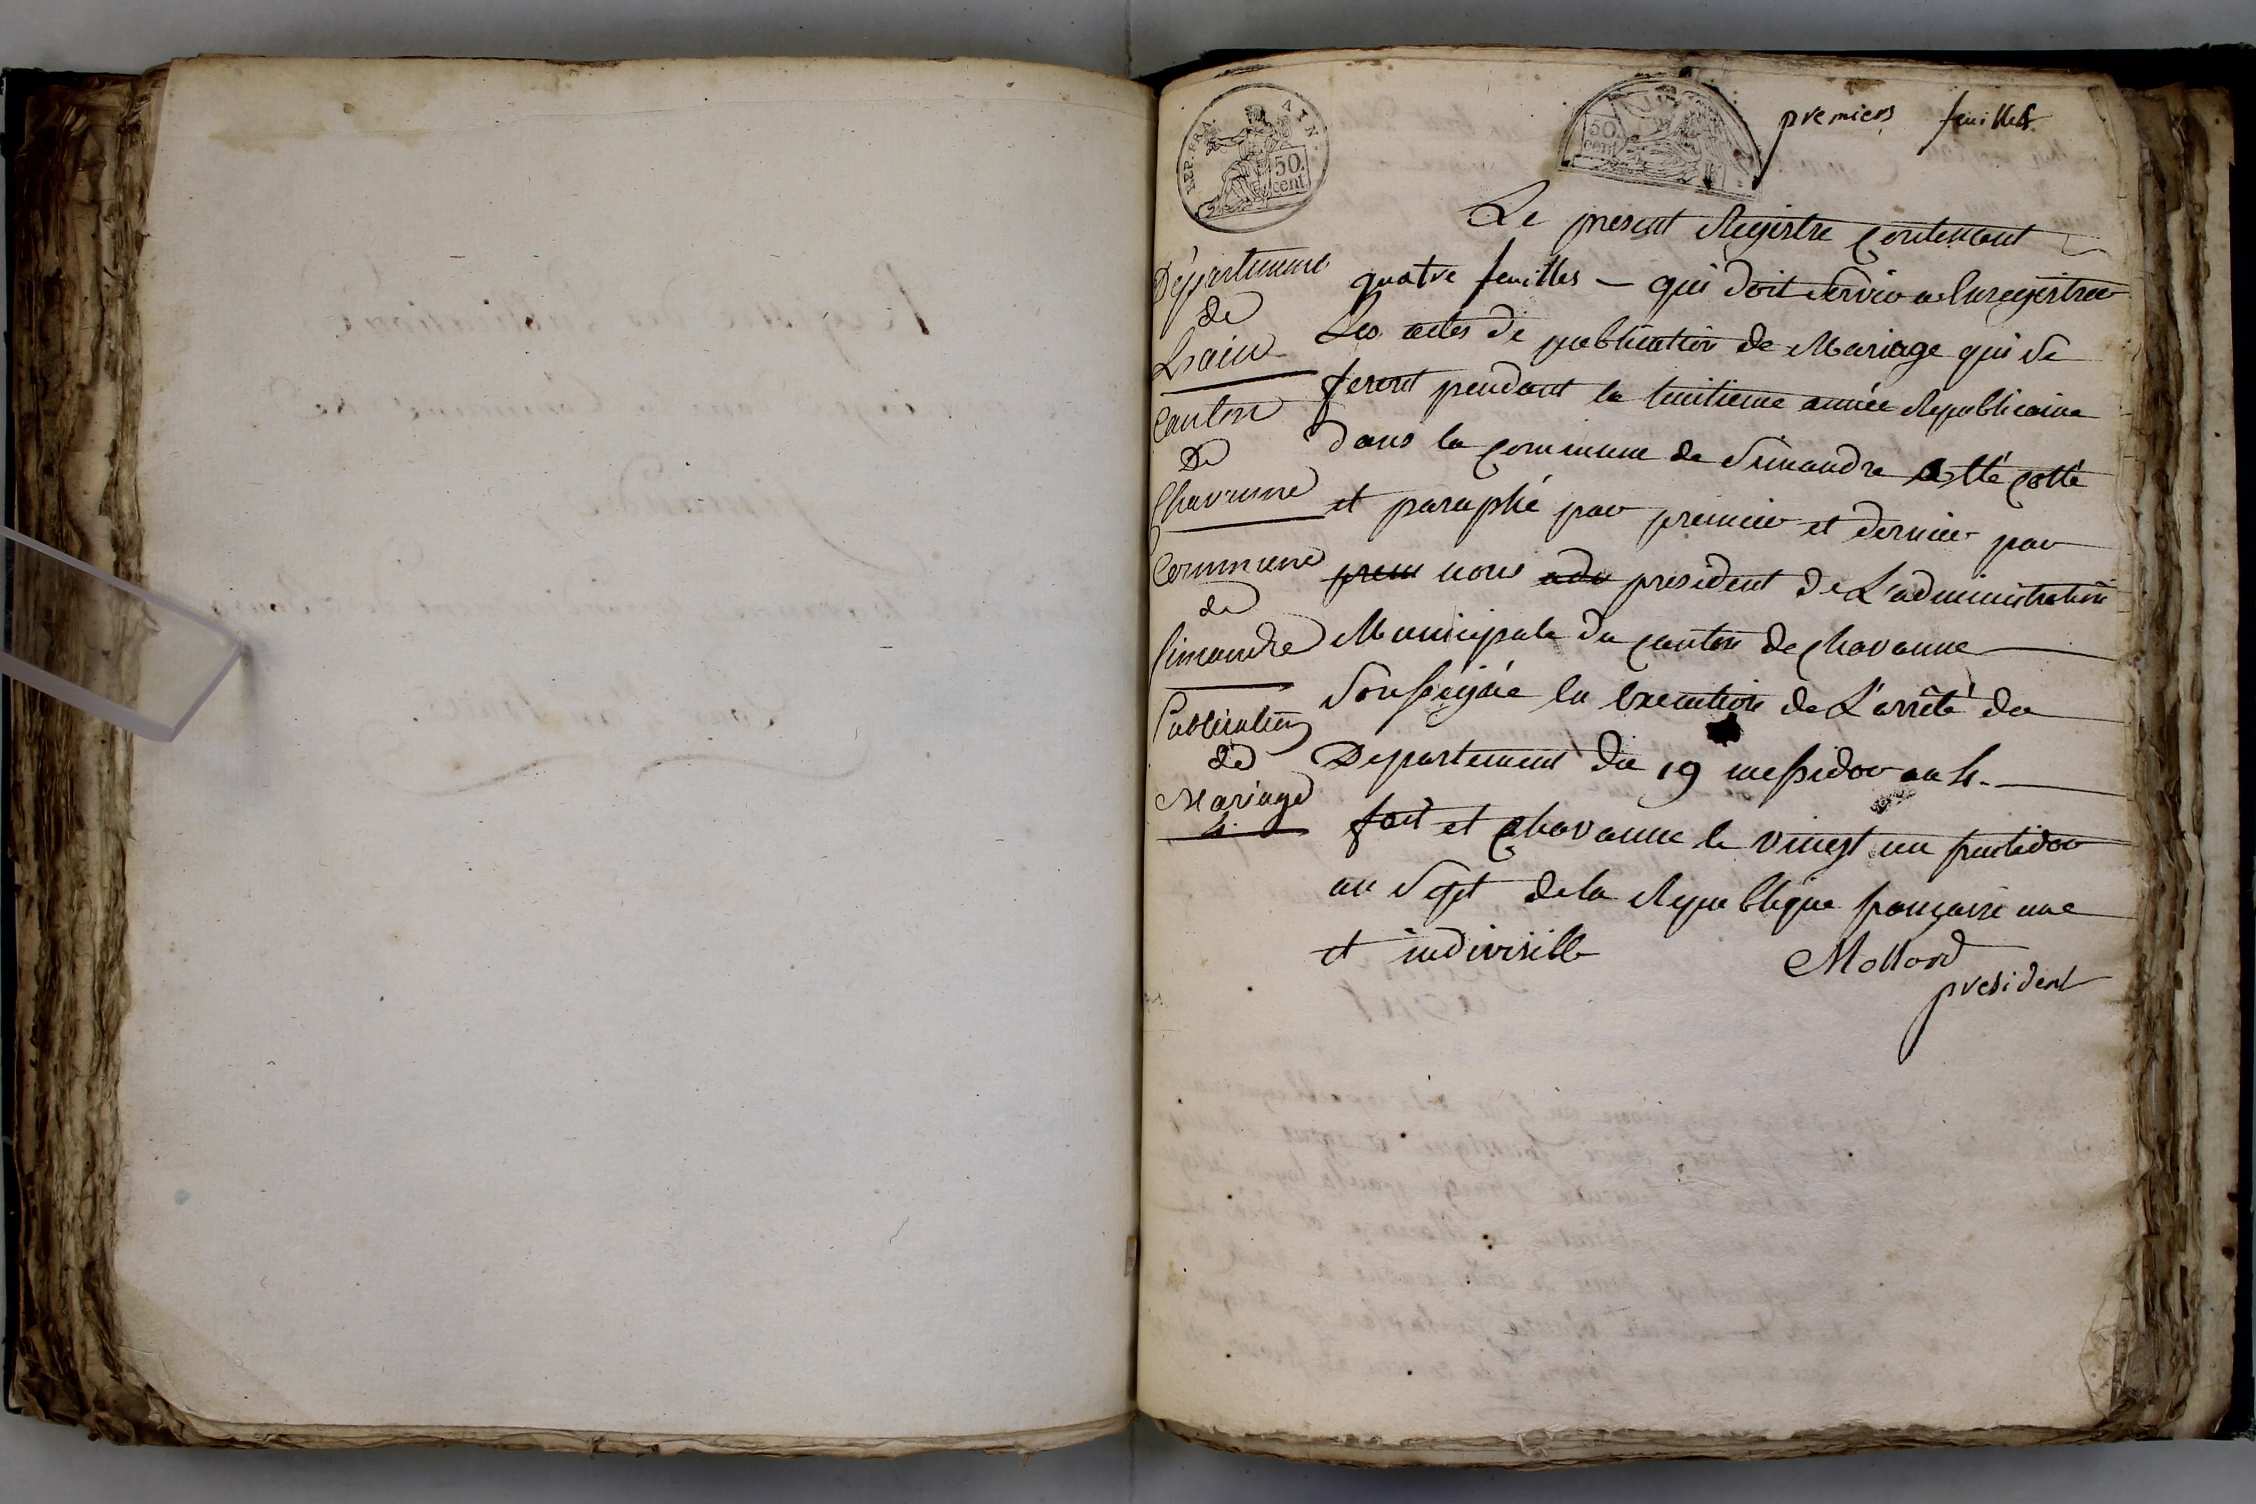 REP. FRA.
AYN.
50.
cent
50.
cent
premiers feuillets
Le present Registre Contenant
quatre feuilles - qui doit servir a Enregistrer
Les actes de publication de Mariage qui se
feront pendant la huitieme année Republicaine
dans la Commune de Simandre a été Cotté
et paraphé par premier et dernier par
prem nous adm president de L'administration
Municipale du Canton de Chavanne
Soussigné en Execution de L'arrêté du
Departement du 19 messidor an 4.
fait et Chavanne le vingt un fructidor
an Sept de la Republique françoise une
et indivisible
Mollard
president
Département
de
L'ain
Canton
De
Chavanne
Commune
de
Simandre
Publication
de
Mariage
4.